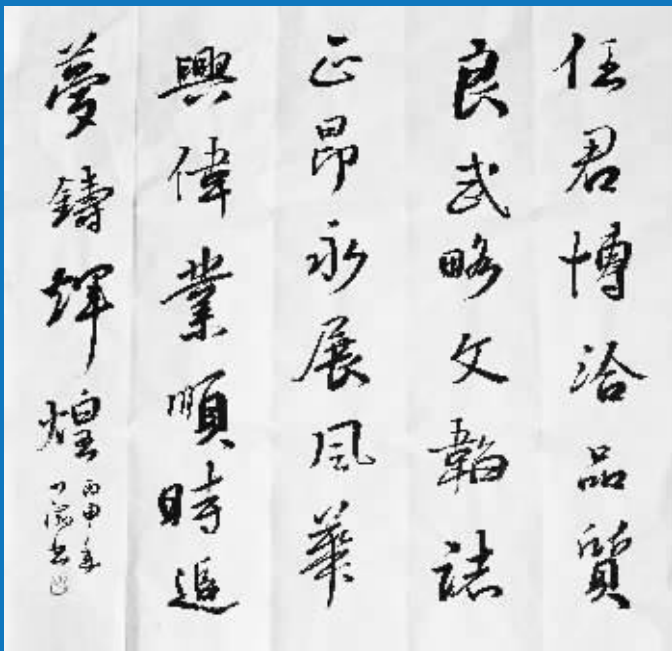 任君博洽品質
良武略文韜誌
正昂永展風華
興偉業順時追
夢鑄輝煌
丙申年
書